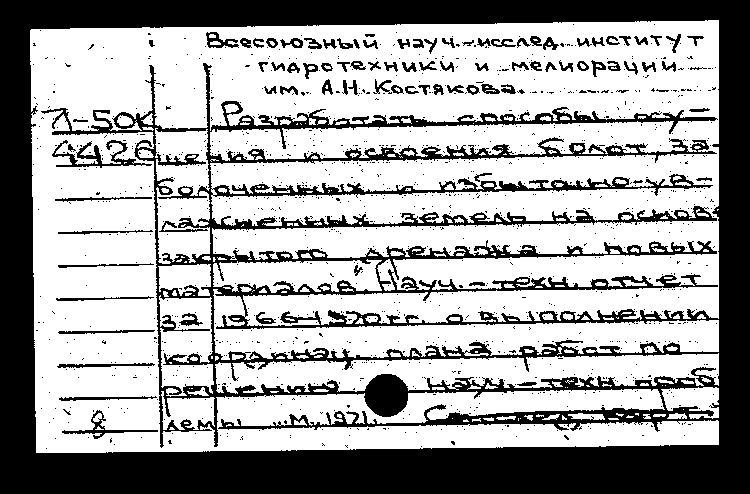 Всесоюзный науч.-исслед. институт
гидротехники и мелиорации
им. А.Н. Костякова.
Л-50К Разработать способы осу-
4426 шения и освоения болот, за-
болоченных и избыточно-ув-
лажненных земель на основе
закрытого дренажа и новых
материалов. Науч.-техн. отчет
за 1966-1970 гг. о выполнении
координац. плана работ по
решению науч.-техн. проб
8 лемы М., 1971. См. след. карт.